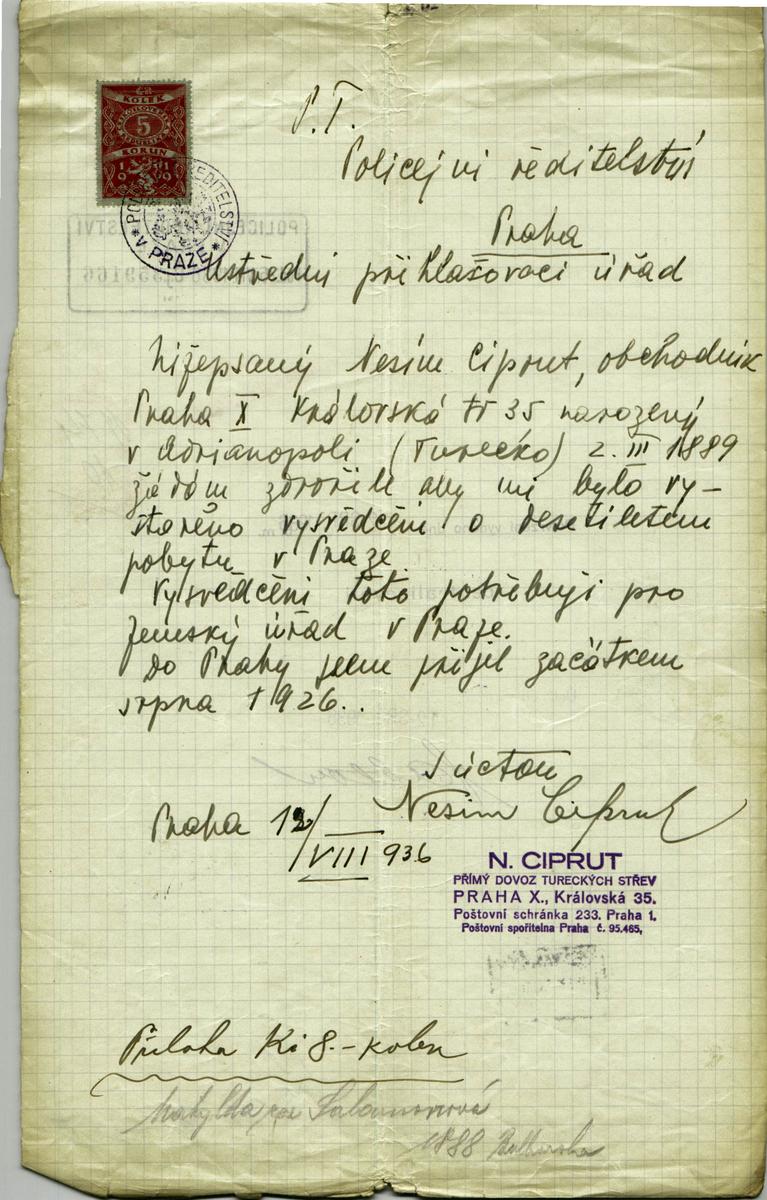 KOLEK
5
KORUN
1919
POLICEJNÍ ŘEDITELSTVÍ
* V PRAZE *
P.T.
Policejní ředitelství
Praha
Ustřední přihlašovací úřad
Nížepsaný Nesim Ciprut, obchodník
Praha X Královská tř 35 narozený
v Adrianopoli (Turecko) 2. III 1889
žádám zdvořile aby mi bylo vy-
staveno vysvědčení o desetiletém
pobytu v Praze.
Vysvědčení toto potřebuji pro
Zemský úřad v Praze.
Do Prahy jsem přijel začátkem
srpna 1926..
S úctou
Nesim Ciprut
Praha 12/VIII 936
N. CIPRUT
PŘÍMÝ DOVOZ TURECKÝCH STŘEV
PRAHA X., Královská 35.
Poštovní schránka 233. Praha 1.
Poštovní spořitelna Praha č. 95.465,
Příloha Kč 8.- kolek
1888